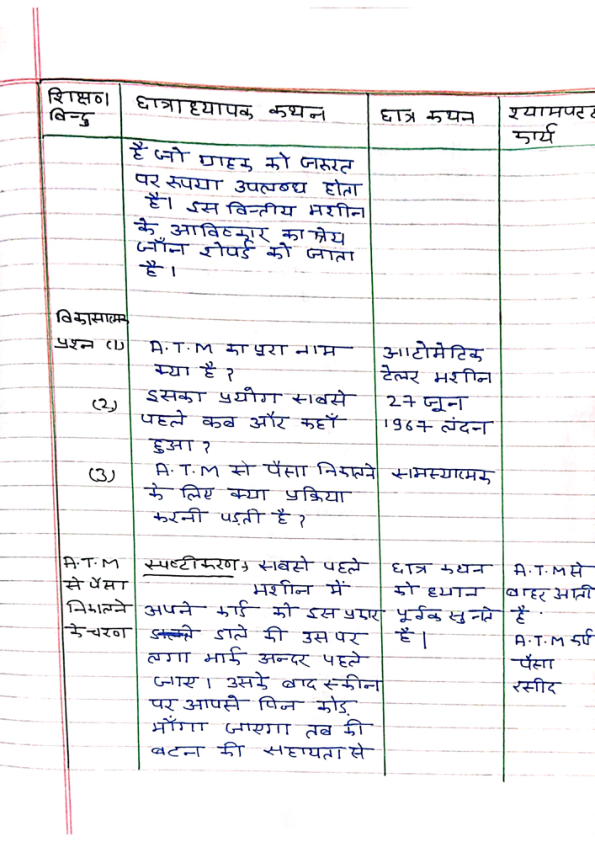 शिक्षण बिन्दु
छात्राध्यापक कथन
छात्र कथन
श्यामपट्ट कार्य
है जो ग्राहक को जरूरत
पर रूपया उपलब्ध होता
है। इस वित्तीय मशीन
के आविष्कार का श्रेय
जॉन शेपर्ड को जाता
है।
विकासात्मक
प्रश्न (1) A.T.M का पूरा नाम
क्या है ?
आटोमेटिक
टेलर मशीन
(2) इसका प्रयोग सबसे
पहले कब और कहाँ
हुआ ?
27 जून
1967 लंदन
(3) A.T.M से पैसा निकालने
के लिए क्या प्रक्रिया
करनी पड़ती है ?
सामस्यात्मक
A.T.M
से पैसा
निकालने
के चरण
स्पष्टीकरण, सबसे पहले
मशीन में
अपने कार्ड को इस प्रकार
डाले की उस पर
लगा मार्क अन्दर पहले
जाए। उसके बाद स्कीन
पर आपसे पिन कोड
माँगा जाएगा तब की
बटन की सहायता से
छात्र कथन
को ध्यान
पूर्वक सुनते
है।
A.T.M से
बाहर आती
है
A.T.M कार्ड
पैसा
रसीद